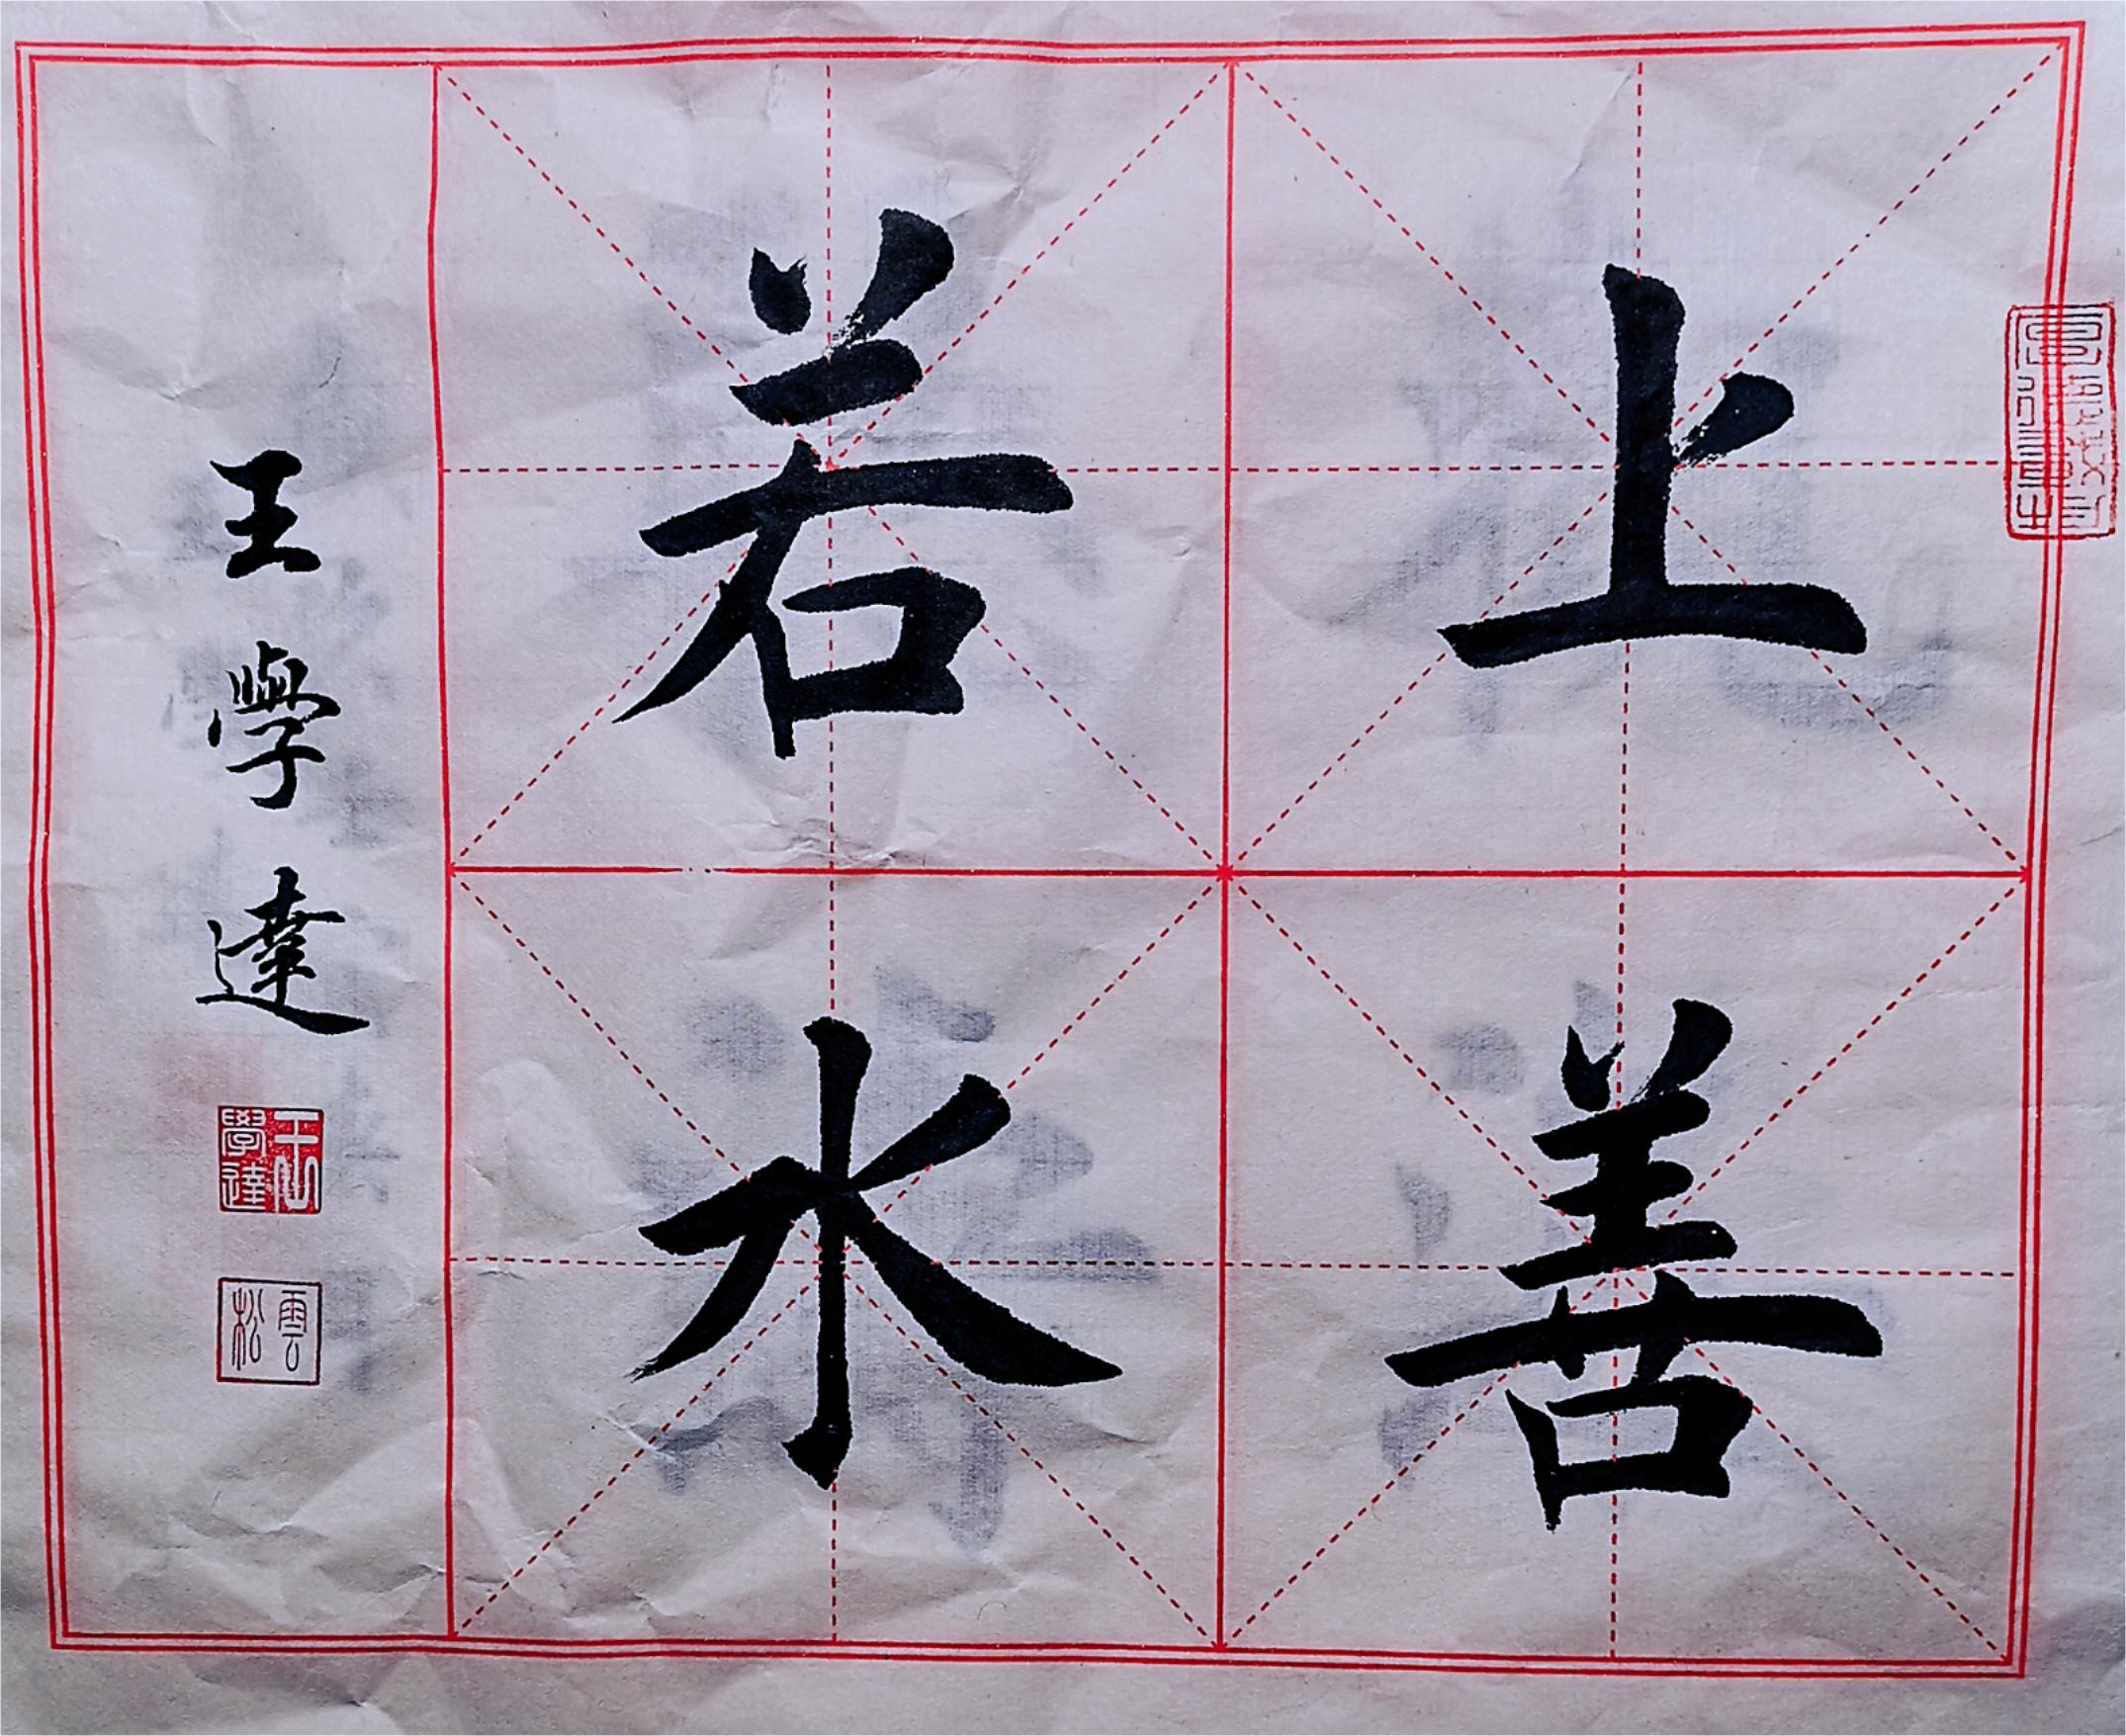 上善
若水
王學達
王印
學達
雲松